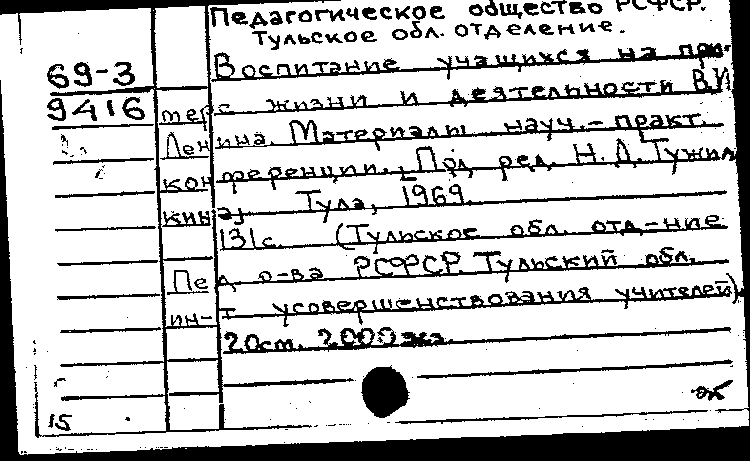 Педагогическое общество РСФСР.
Тульское обл. отделение.
69-3
Воспитание учащихся на при-
9416
мере жизни и деятельности В.И.
Ленина. Материалы науч.-практ.
конференции. [Под ред. Н.Д. Тужил
кина]. Тула, 1969.
131с. (Тульское обл. отд-ние
Пед. о-ва РСФСР. Тульский обл.
ин-т усовершенствования учителей).
20см. 2000 экз.
15